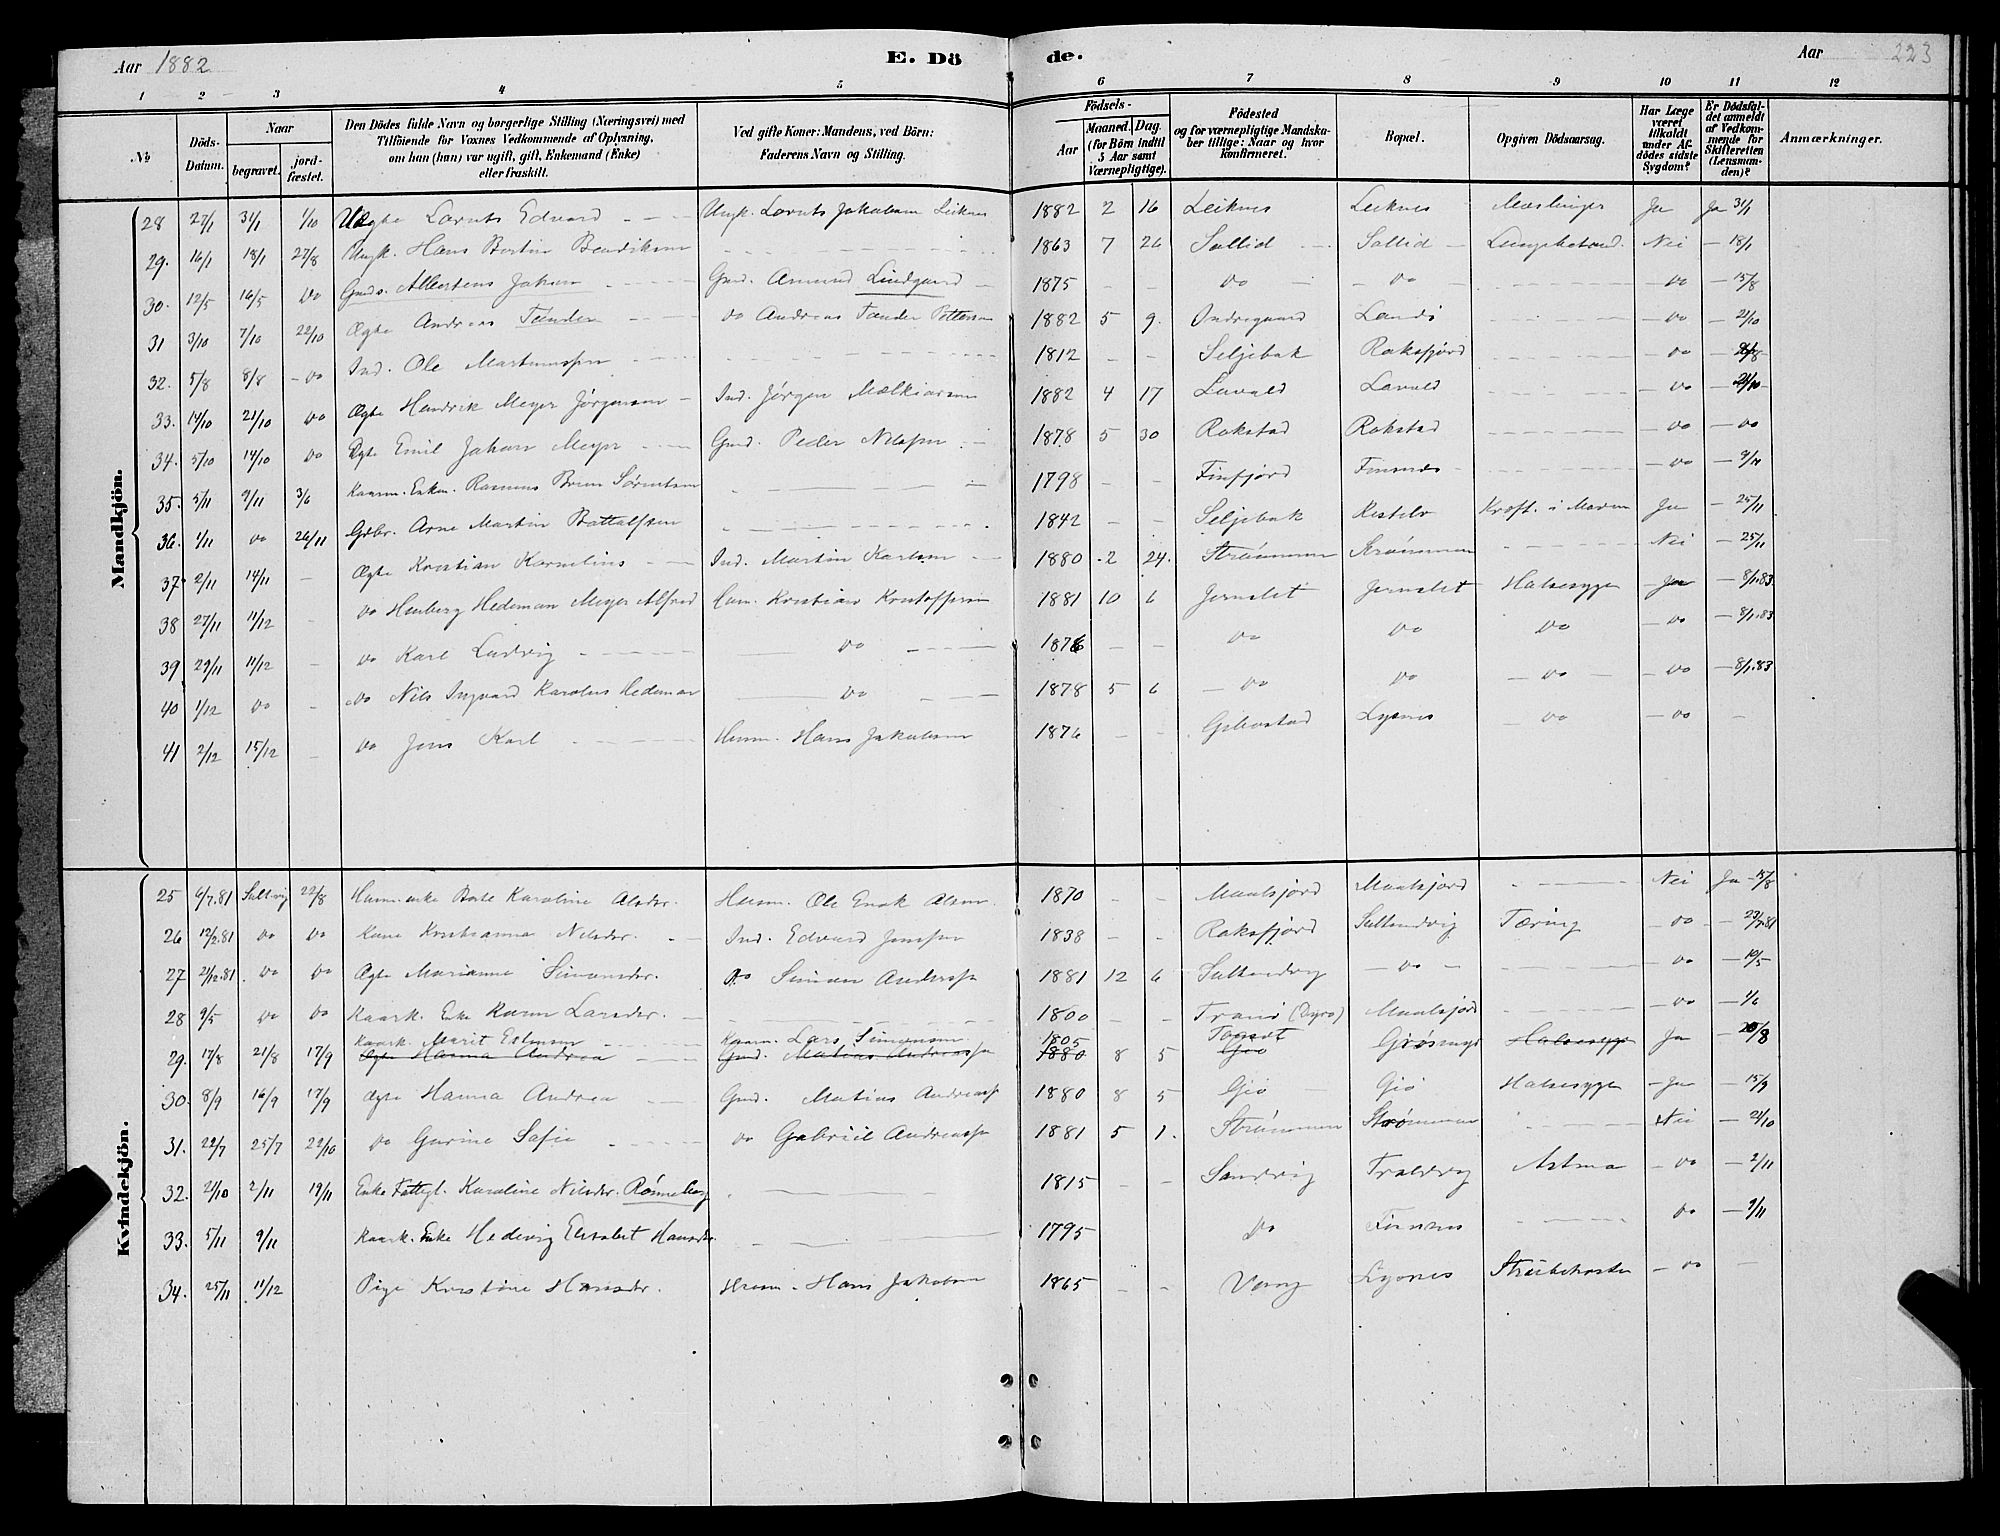 Aar 1882 E. Dö de. Aar 223
1 2 3 4 5 6 7 8 9 10 11 12
No
Döds-Datum.
Naar
begravet.
jord-fæstet.
Den Dödes fulde Navn og borgerlige Stilling (Næringsvei) med
Tilföiende for Voxnes Vedkommende af Oplysning,
om hun (han) var ugift, gift, Enkemand (Enke)
eller fraskilt.
Ved gifte Koner: Mandens, ved Börn:
Faderens Navn og Stilling.
Födsels-
Aar
Maaned. Dag.
(for Börn indtil
5 Aar samt
Værnepligtige).
Födested
og for værnepligtige Mandska-
ber tillige: Naar og hvor
konfirmeret.
Bopæl.
Opgiven Dödsaarsag.
Har Læge
været
tilkaldt
under Af-
dödes sidste
Sygdom?
Er Dödsfal-
det anmeldt
af Vedkom-
mende for
Skifteretten
(Lensman-
den)?
Anmærkninger.
Mandkjön.
28 27/1 31/1 1/10 Uægte Lornts Edvard Ungk. Lornts Jakobsen Leiknes 1882 2 16 Leiknes Leiknes Mæslinger Ja Ja 31/1
29. 16/1 18/1 27/8 Ungk. Hans Bertin Bendiksen 1863 7 26 Sollid Sollid Nei 18/1
30. 12/5 16/5 do Gmds. Albertens Johan Gmd. Amund Lindgaard 1875 do do do 15/8
31 3/10 7/10 22/10 Ægte Andreas Tander do Andreas Tander Pettersen 1882 5 9. Indregaard Landö do 21/10
32. 5/8 8/8 do Ind. Ole Martinussen 1812 Seljebak Roksfjord do
33. 14/10 21/10 do Ægte Hendrik Meyer Jørgensen Ind. Jørgen Melkiorsen 1882 4 17 Lavold Lavold do 21/10
34. 5/10 14/10 do Ægte Emil Johan Meyer Gmd. Peder Nilssen 1878 5 30 Rokstad Rokstad do do
35. 5/11 9/11 3/6 Kaarm. Enkem. Rasmus Sørentsen 1798 Finfjord Finnsnes do 9/11
36. 1/11 do 26/11 Gdbr. Arne Martin Bottolfsen 1842 Seljebak Reselv Kræft. i Maven Ja 25/11
37. 2/11 14/11 Ægte Kristian Kornelius Ind. Martin Karlsen 1880 2 24. Strømmen Strømmen Nei 25/11
38 27/11 11/12 do Henberg Hedeman Meyer Alfred Husm. Kristian Kristoffersen 1881 10 6 Jernslet Jernslet Halsesyge Ja 8/1.83
39 29/11 11/12 do Karl Ludvig do 1876 do do do do 8/1.83
40 1/12 do do Nils Ingvard Karolus Hedeman do 1878 5 6 do do do do 8/1.83
41 2/12 15/12 do Jens Karl Husm. Hans Jakobsen 1876 Gibostad Lysnes do do
Kvindekjön.
25 6/7.81 Saltvig 22/8 Karoline Alsdr. Husm. Ole Enok Alsen 1870 Maalsjord Maalsjord Nei Ja 15/8
26 12/2.81 do do Kone Kristianna Nilsdr. Ind. Edvard Jenssen 1838 Roksfjord Tæring do
27 21/12.81 do do Ægte Marianne Simonsdr. do Simon Anderssen 1881 12 6 do do 10/5
28 9/5 do do Kaark. Enke Karen Larsdr. 1800 Tranö (Dyrö) Maalsjord do 1/6
Kaark. Marit Estensen Kaarm. Lars Simonsen 1805
29. 17/8 21/8 17/9 Ægte Hanna Andrea Gmd. Matias Andreassen 1880 8 5 Gjö Halsesyge Ja
30. 8/9 16/9 17/9 Ægte Hanna Andrea Gmd. Matias Andreassen 1880 8 5 Gjö Gjö Halsesyge Ja 15/9
31. 22/7 25/7 22/10 do Gurine Sofie do Gabriel Andreassen 1881 5 1. Strømmen Strømmen Nei 21/10
32. 21/10 2/11 19/11 Enke Fattigl. Karoline Nilsdr. Rønneberg 1815 Sandvig Troldvig Astma do 2/11
33. 5/11 9/11 Kaark. Enke Hedevig Elisabet Hansdr. 1795 do Finsnes do 9/11
34. 25/11 11/12 Pige Kristine Hansdr. Husm. Hans Jakobsen 1865 Vang Lysnes Strubehoste do